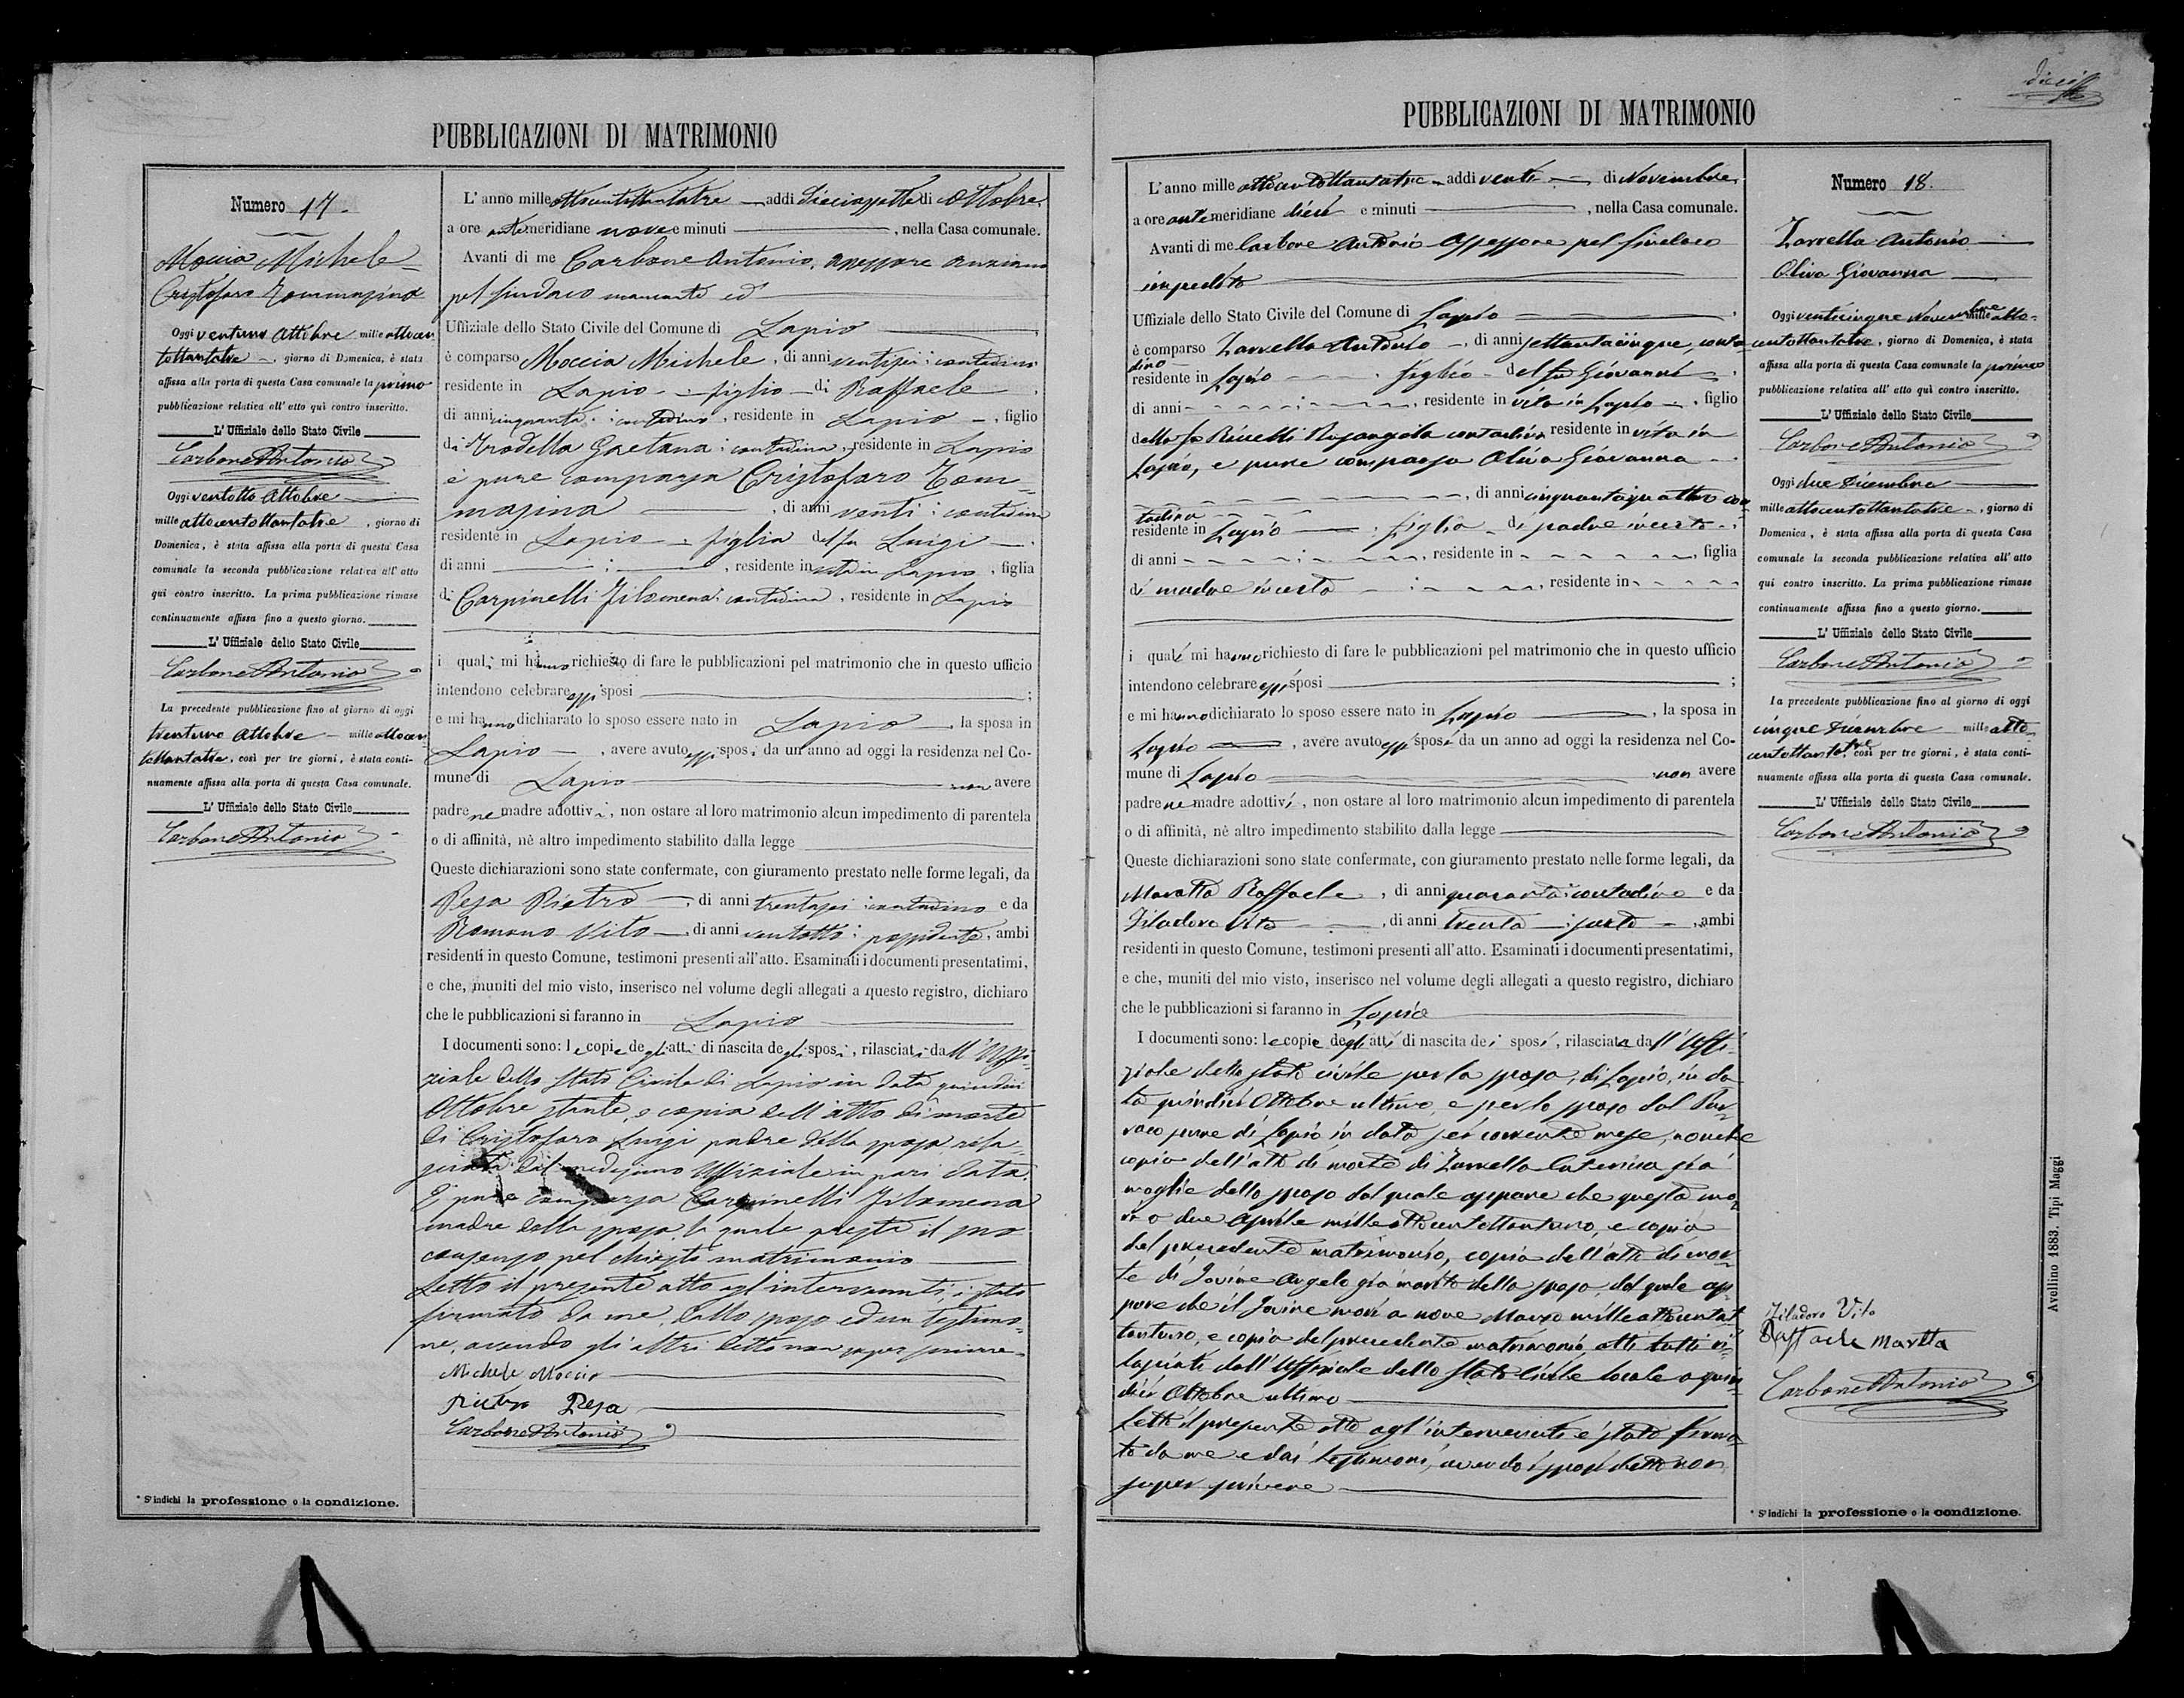 PUBBLICAZIONI DI MATRIMONIO
Numero 17.
Moccia Michele
Cristofaro Tommasina
Oggi ventuno Ottobre mille ottocen
tottantatre, giorno di Domenica, è stata
affissa alla porta di questa Casa comunale la prima
pubblicazione relativa all' atto quì contro inscritto.
L' Uffiziale dello Stato Civile
Carbone Antonio
Oggi ventotto Ottobre
mille ottocentottantatre, giorno di
Domenica, è stata affissa alla porta di questa Casa
comunale la seconda pubblicazione relativa all' atto
qui contro inscritto. La prima pubblicazione rimase
continuamente affissa fino a questo giorno.
L' Uffiziale dello Stato Civile
Carbone Antonio
La precedente pubblicazione fino al giorno di oggi
trentuno Ottobre mille ottocen
tottantatre, così per tre giorni, è stata conti-
nuamente affissa alla porta di questa Casa comunale.
L' Uffiziale dello Stato Civile
Carbone Antonio
* S'indichi la professione o la condizione.
L' anno mille ottocentottantatre addì diciassette di Ottobre,
a ore antemeridiane nove e minuti , nella Casa comunale.
Avanti di me Carbone Antonio, assessore anziano
pel sindaco mancante ed
Uffiziale dello Stato Civile del Comune di Lapio
è comparso Moccia Michele, di anni ventisei; contadino
residente in Lapio figlio di Raffaele
di anni cinquanta; contadino, residente in Lapio, figlio
di Trodella Gaetana; contadina, residente in Lapio
è pure comparsa Cristofaro Tom-
masina , di anni venti; contadina
residente in Lapio figlia del fu Luigi
di anni ; , residente in vita in Lapio, figlia
di Carpinelli Filomena; contadina, residente in Lapio
i quali mi hanno richiesto di fare le pubblicazioni pel matrimonio che in questo uffizio
intendono celebrare essi sposi ;
e mi hanno dichiarato lo sposo essere nato in Lapio, la sposa in
Lapio, avere avuto essi sposi da un anno ad oggi la residenza nel Co-
mune di Lapio non avere
padre nè madre adottivi, non ostare al loro matrimonio alcun impedimento di parentela
o di affinità, nè altro impedimento stabilito dalla legge
Queste dichiarazioni sono state confermate, con giuramento prestato nelle forme legali, da
Pesa Pietro, di anni trentasei; contadino e da
Romano Vito, di anni ventotto; possidente, ambi
residenti in questo Comune, testimoni presenti all'atto. Esaminati i documenti presentatimi,
e che, muniti del mio visto, inserisco nel volume degli allegati a questo registro, dichiaro
che le pubblicazioni si faranno in Lapio
I documenti sono: le copie degli atti di nascita degli sposi, rilasciati dall' Uffi-
ziale dello Stato Civile di Lapio in data quindici
Ottobre stante, e copia dell' atto di morte
di Cristofaro Luigi padre della sposa rila-
sciata dal medesimo Uffiziale in pari data.
È pure comparsa Carpinelli Filomena
madre della sposa la quale presta il suo
consenso pel chiesto matrimonio
Letto il presente atto agl' intervenuti, è stato
firmato da me, dallo sposo ed un testimo-
ne, avendo gli altri detto non saper scrivere.
Michele Moccia
Pietro Pesa
Carbone Antonio
dieci
PUBBLICAZIONI DI MATRIMONIO
L' anno mille ottocentottantatre addì venti di Novembre,
a ore antemeridiane dieci e minuti , nella Casa comunale.
Avanti di me Carbone Antonio Assessore pel sindaco
impedito
Uffiziale dello Stato Civile del Comune di Lapio
è comparso Zarrella Antonio, di anni settantacinque, conta-
dino
residente in Lapio figlio del fu Giovanni
di anni ; , residente in vita in Lapio, figlio
della fu Rosangela contadina residente in vita in
Lapio, e pure comparsa Oliva Giovanna
, di anni cinquantaquattro con
tadina
residente in Lapio figlia di padre incerto
di anni ; , residente in , figlia
di madre incerta ; , residente in
i quali mi hanno richiesto di fare le pubblicazioni pel matrimonio che in questo uffizio
intendono celebrare essi sposi ;
e mi hanno dichiarato lo sposo essere nato in Lapio, la sposa in
Lapio, avere avuto essi sposi da un anno ad oggi la residenza nel Co-
mune di Lapio non avere
padre nè madre adottivi, non ostare al loro matrimonio alcun impedimento di parentela
o di affinità, nè altro impedimento stabilito dalla legge
Queste dichiarazioni sono state confermate, con giuramento prestato nelle forme legali, da
Maratta Raffaele, di anni quaranta; contadino e da
Filadoro Vito, di anni trenta; sarto, ambi
residenti in questo Comune, testimoni presenti all'atto. Esaminati i documenti presentatimi,
e che, muniti del mio visto, inserisco nel volume degli allegati a questo registro, dichiaro
che le pubblicazioni si faranno in Lapio
I documenti sono: le copie degli atti di nascita dei sposi, rilasciate dall' Uffi-
ziale dello stato civile per la sposa, di Lapio, in da-
ta quindici Ottobre ultimo, e per lo sposo dal Par-
roco pure di Lapio in data sei corrente mese, nonche
copia dell' atto di morte di Zarrella Caterina già
moglie dello sposo dal quale appare che questa mo-
rì a due Aprile milleottocentottantuno, e copia
del precedente matrimonio, copia dell' atto di mor-
te di Iovine Angelo già marito della sposa, dal quale ap-
pare che il Iovine morì a nove Marzo milleottocentot-
tantuno, e copia del precedente matrimonio, atti tutti ri-
lasciati dall' Uffiziale dello Stato Civile locale a quin-
dici Ottobre ultimo
Letto il presente atto agl' intervenuti è stato firma-
to da me e dai testimoni, avendo i sposi detto non
saper scrivere
Numero 18.
Zarrella Antonio
Oliva Giovanna
Oggi venticinque Novembre mille otto-
centottantatre, giorno di Domenica, è stata
affissa alla porta di questa Casa comunale la prima
pubblicazione relativa all' atto quì contro inscritto.
L' Uffiziale dello Stato Civile
Carbone Antonio
Oggi due Dicembre
mille ottocentottantatre, giorno di
Domenica, è stata affissa alla porta di questa Casa
comunale la seconda pubblicazione relativa all' atto
qui contro inscritto. La prima pubblicazione rimase
continuamente affissa fino a questo giorno.
L' Uffiziale dello Stato Civile
Carbone Antonio
La precedente pubblicazione fino al giorno di oggi
cinque Dicembre mille otto-
centottantatre, così per tre giorni, è stata conti-
nuamente affissa alla porta di questa Casa comunale.
L' Uffiziale dello Stato Civile
Carbone Antonio
Filadoro Vito
Raffaele Maratta
Carbone Antonio
* S'indichi la professione o la condizione.
Avellino 1883. Tipi Maggi